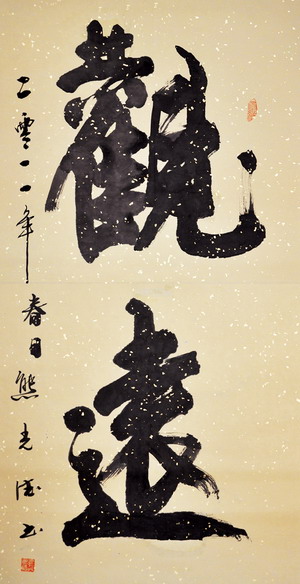 觀遠
二零一一年春日熊光德书